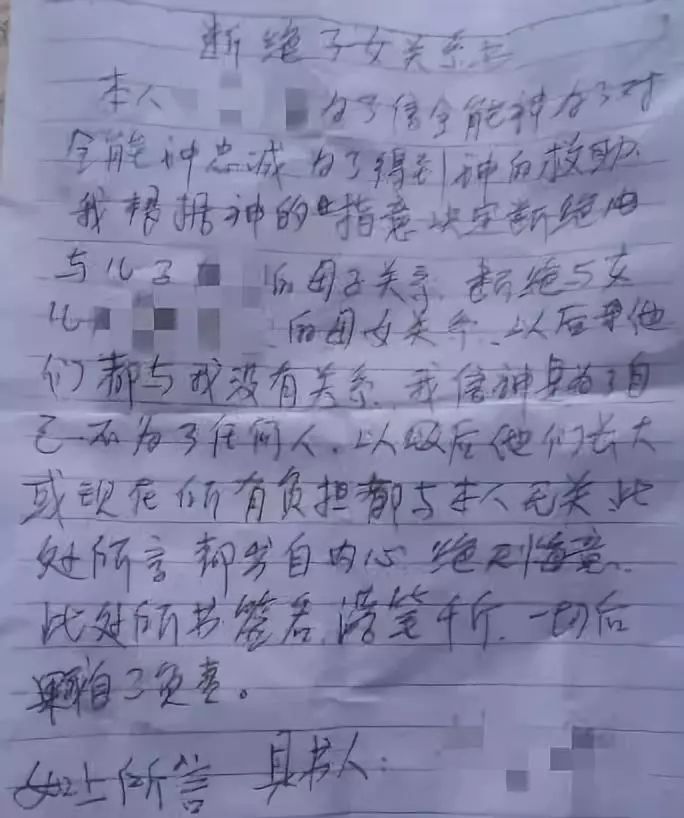 断绝子女关系书
本人 为了信全能神为了对
全能神忠诚 为了得到神的救助
我根据神的指意决定断绝
与儿子 的母子关系 断绝与女
儿 的母女关系、以后 他
们都与我没有关系、我信神 为了自
己不为了任何人、以 后他们长大
或现在所有负担都与本人无关、此
处所言都出自内心 绝 悔意、
此处所书签名、落笔千斤、一切后
果 自 负责。
如上所言 具书人: